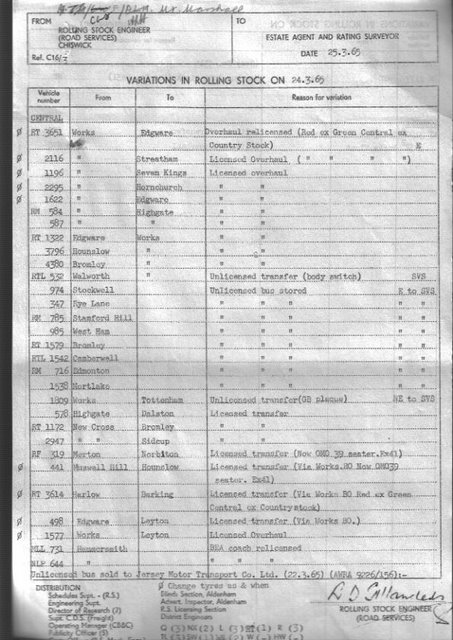 Mr. Marshall
FROM
ROLLING STOCK ENGINEER
(ROAD SERVICES)
CHISWICK
Ref. C16/
TO
ESTATE AGENT AND RATING SURVEYOR
DATE 25.3.65
VARIATIONS IN ROLLING STOCK ON 24.3.65
Vehicle number From To Reason for variation
CENTRAL
Ø RT 3651 Works Edgware Overhaul relicensed (Red ex Green Central ex
Country Stock) E
Ø 2116 " Streatham Licensed Overhaul ( " " " ")
Ø 1196 " Seven Kings Licensed overhaul
Ø 2295 " Hornchurch " "
Ø 1622 " Edgware " "
RM 584 " Highgate " "
587 " " " "
RT 1322 Edgware Works " "
3796 Hounslow " " "
4380 Bromley " " "
RTL 532 Walworth " Unlicensed transfer (body switch) SVS
974 Stockwell Unlicensed bus stored E to SVS
347 Rye Lane " " " " "
RM 785 Stamford Hill " " " " "
985 West Ham " " " " "
RT 1579 Bromley " " " " "
RTL 1542 Camberwell " " " " "
RM 716 Edmonton " " " " "
1538 Mortlake " " " " "
1809 Works Tottenham Unlicensed transfer(GB plaque) NE to SVS
578 Highgate Dalston Licensed transfer
RT 1172 New Cross Bromley " "
2947 " " Sidcup " "
RF 319 Merton Norbiton Licensed transfer (Now OMO 39 seater.Ex41)
Ø 441 Muswell Hill Hounslow Licensed transfer (Via Works.BO Now OMO39
seater. Ex41)
Ø RT 3614 Harlow Barking Licensed transfer (Via Works BO Red ex Green
Central ex Countrystock)
Ø 498 Edgware Leyton Licensed transfer (Via Works BO.)
Ø 1577 Works Leyton Licensed Overhaul
MLL 731 Hammersmith BEA coach relicensed
NLP 644 " " " "
Unlicensed bus sold to Jersey Motor Transport Co. Ltd. (22.3.65) (AWRA 9226/156):-
DISTRIBUTION Ø Change tyres us & when
Schedules Supt. - (R.S.) Elec. Section, Aldenham
Engineering Supt. Advert. Inspector, Aldenham
Director of Research (2) R.S. Licensing Section
Supt. C.D.S. (Freight) District Engineers
Operating Manager (CB&C)
Publicity Officer (5)
ROLLING STOCK ENGINEER
(ROAD SERVICES)